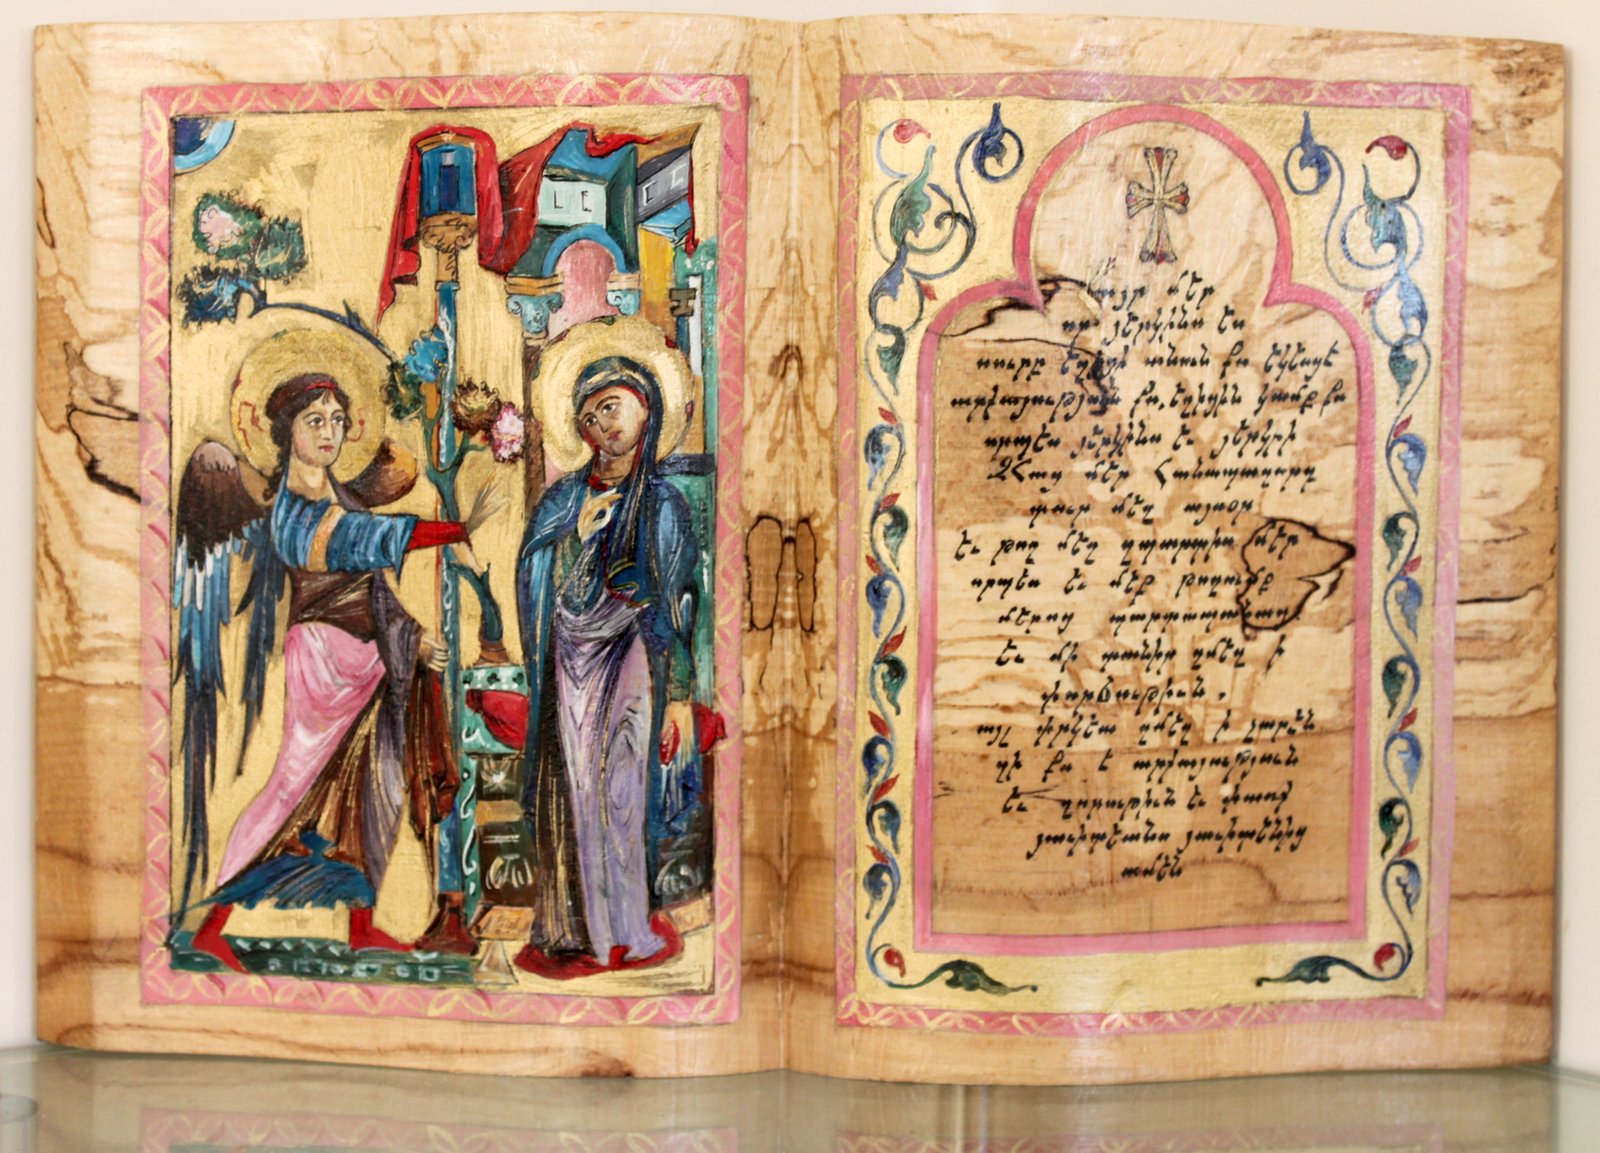 Հայր մեր
որ յերկինս ես
սուրբ եղիցի անուն քո եկեսցէ
արքայություն քո, եղիցին կամք քո
որպես յերկինս եւ յերկրի
ԶՀաց մեր Հանապազորդ
տուր մեզ այսօր
Եւ թող մեզ զպարտիս մեր
որպես եւ մեք թողումք
մերոց պարտապանաց
Եւ մի տանիր զմեզ ի
փորձութիւն.
այլ փրկեա զմեզ ի չարէն
զի քո է արքայություն
Եւ զորութիւն եւ փառք
յաւիտեանս յաւիտենից
ամէն